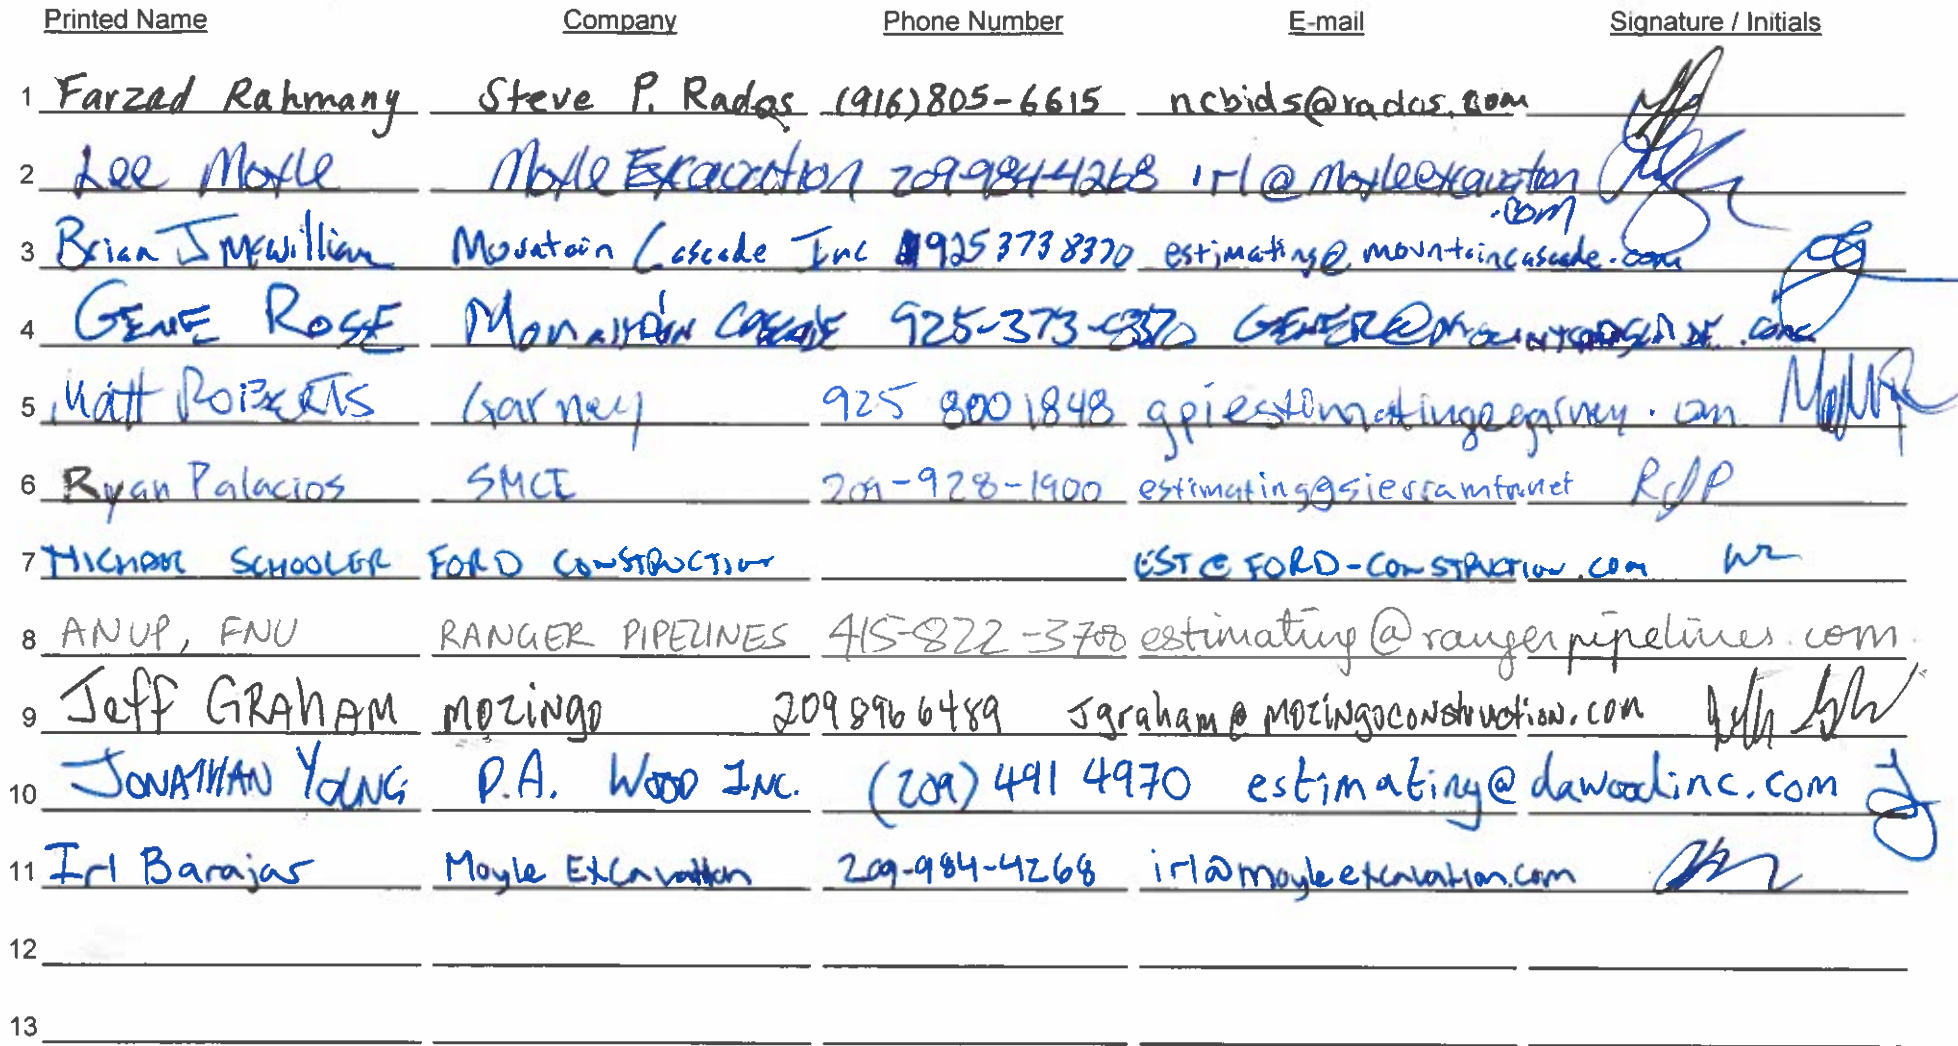 Printed Name Company Phone Number E-mail Signature / Initials
1 Farzad Rahmany Steve P. Rados (916)805-6615 ncbids@rados.com
2 Lee Moyle Moyle Excavation 209-984-4268 irl@moyleexcavation
.com
3 Brian J McWilliam Mountain Cascade Inc 925 373 8370 estimating@mountaincascade.com
4 GENE ROSE Mountain CASCADE 925-373-8370
5 Matt ROBERTS Garney 925 800 1848 gpiestimating@garney.com
6 Ryan Palacios SMCI 209-928-1900 estimating@sierramtn.net RJP
7 MICHAEL SCHOOLER FORD CONSTRUCTION EST@FORD-CONSTRUCTION.COM
8 ANUP, FNU RANGER PIPELINES 415-822-3700 estimating@rangerpipelines.com
9 Jeff GRAhAM MOZINGO 209 896 6489 Jgraham@MOZINGOCONStruction.com
10 JONATHAN YOUNG D.A. WOOD INC. (209) 491 4970 estimating@dawoodinc.com
11 Irl Barajas Moyle Excavation 209-984-4268 irl@moyleexcavation.com
12
13